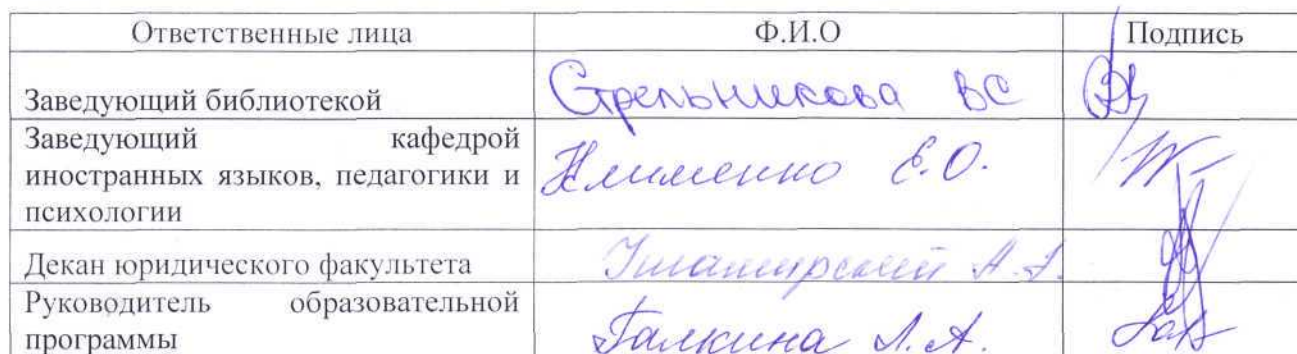 Ответственные лица Ф.И.О Подпись
Заведующий библиотекой Стрельникова ВС
Заведующий кафедрой
иностранных языков, педагогики и Клименко Е.О.
психологии
Декан юридического факультета
Руководитель образовательной
программы Галкина Л.А.